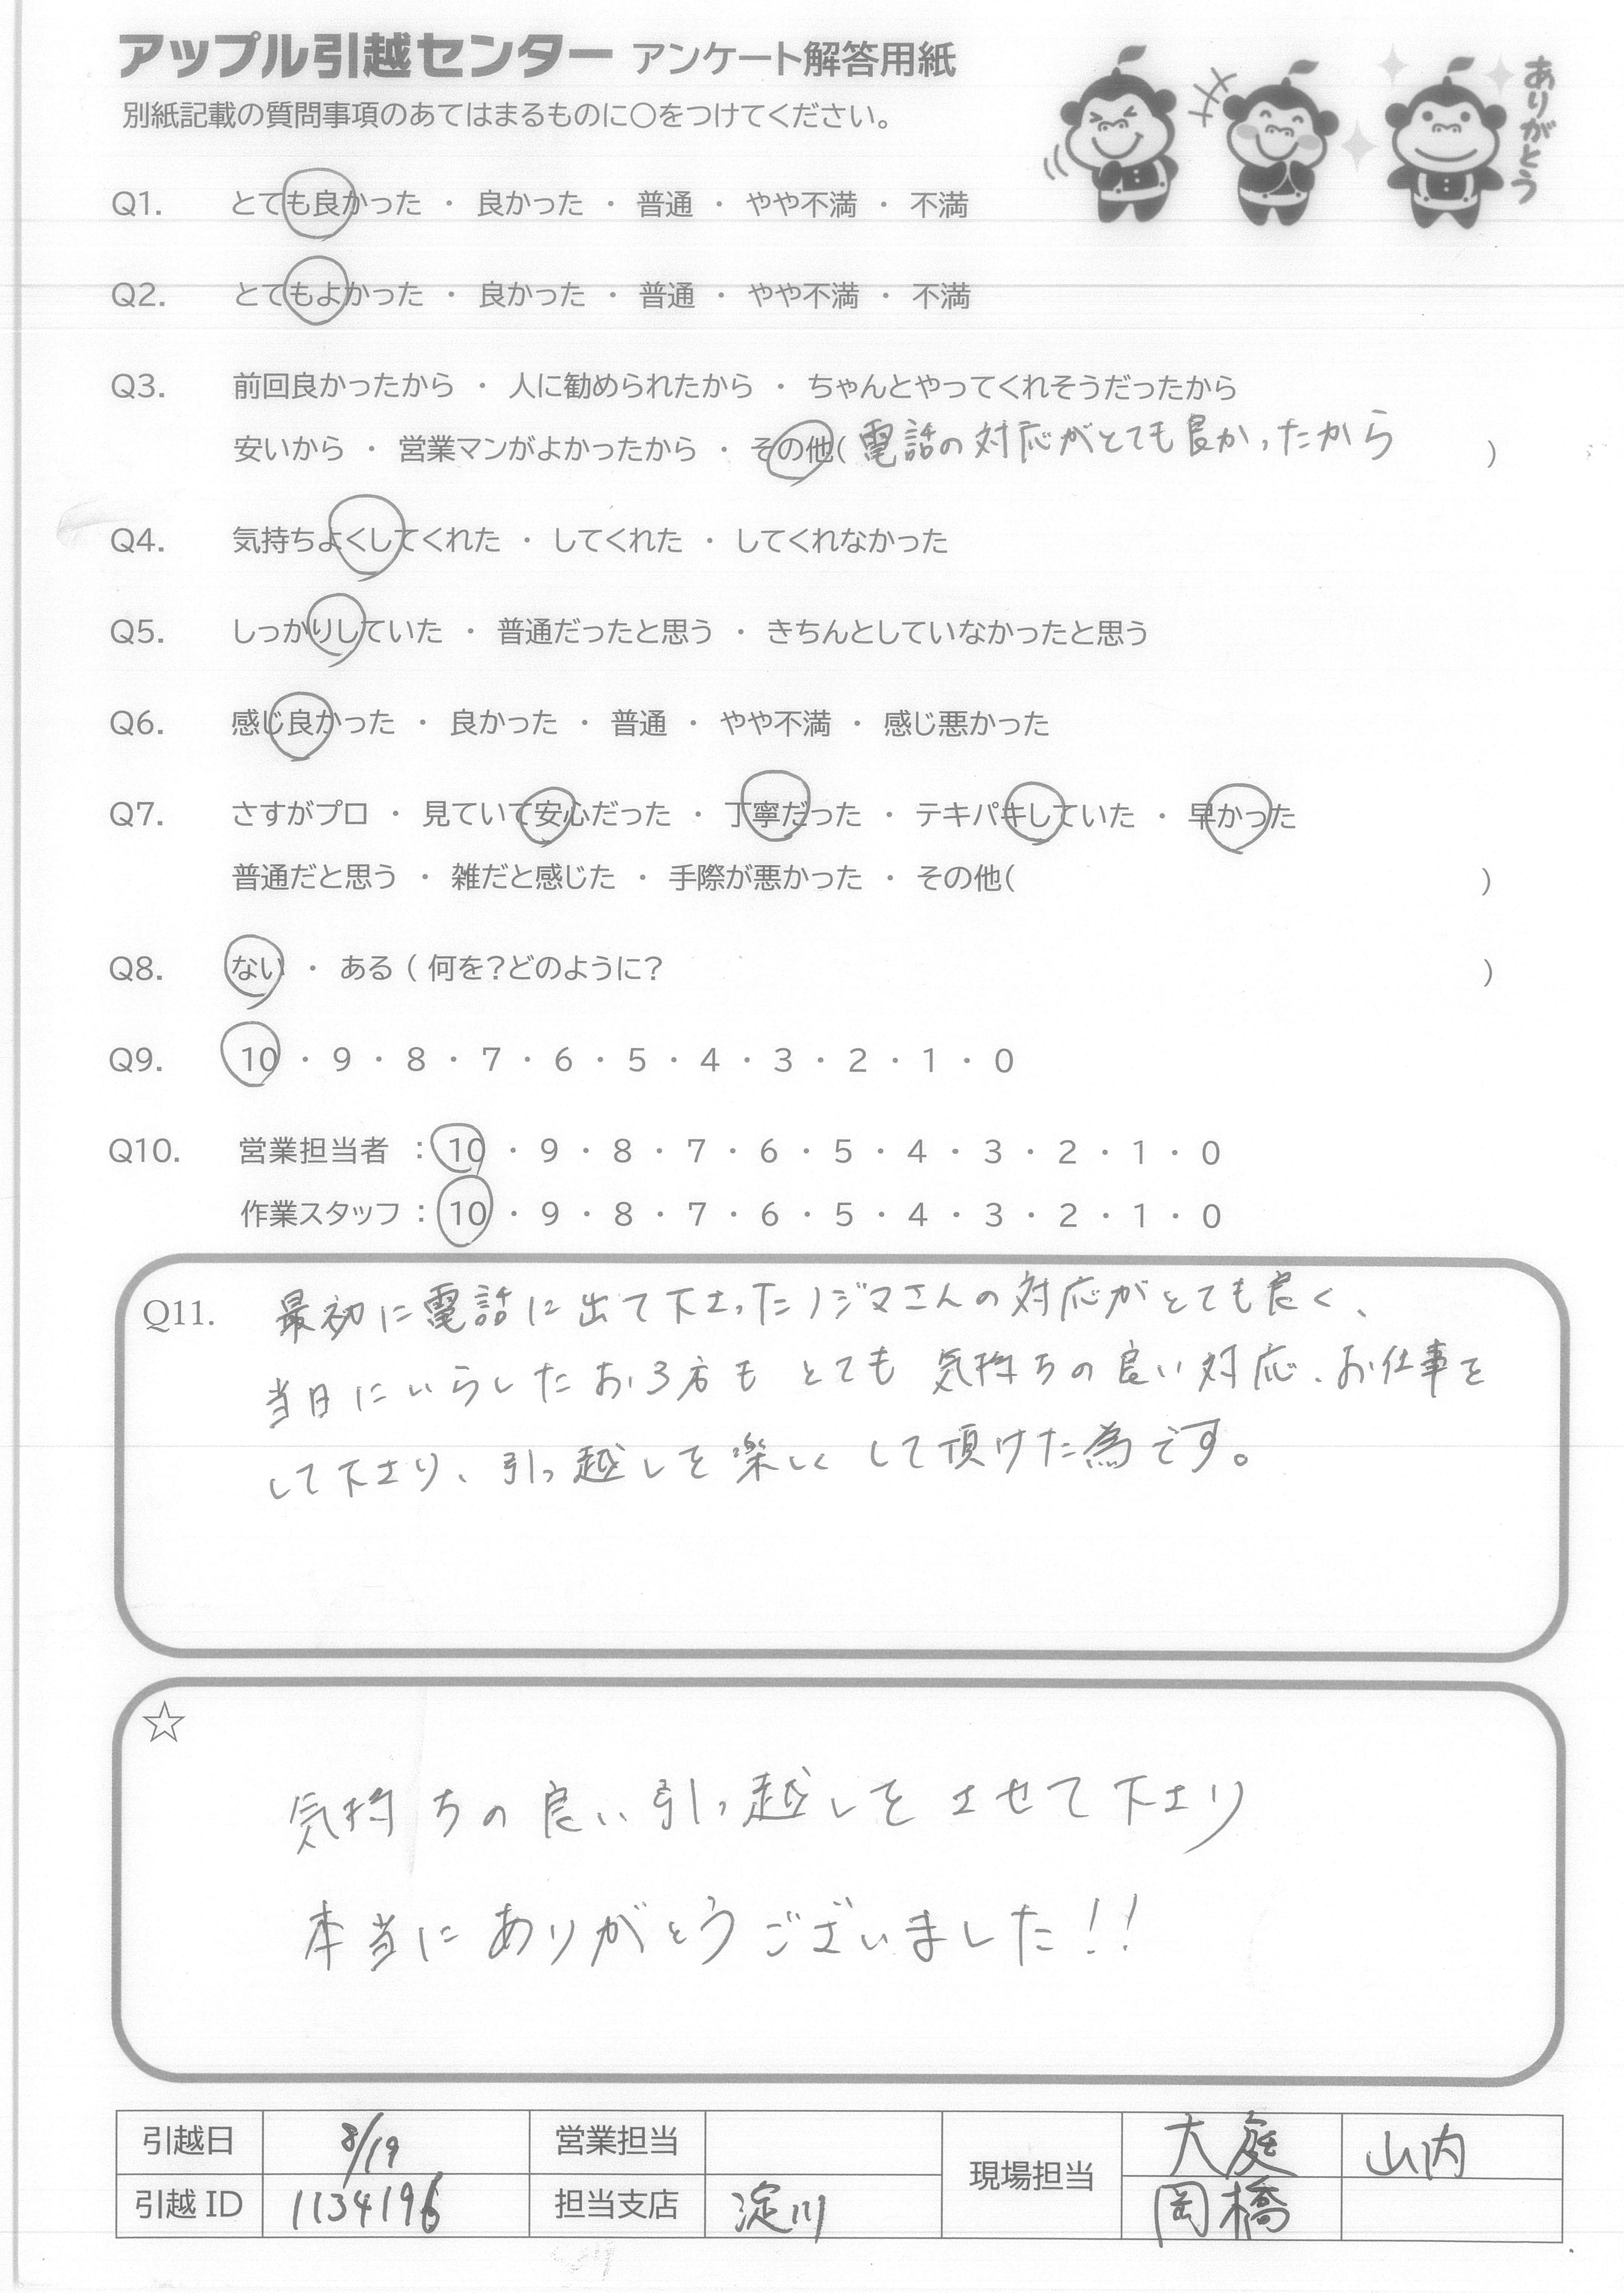 アップル引越センター アンケート解答用紙
別紙記載の質問事項のあてはまるものに○をつけてください。
ありがとう
Q1. とても良かった ・ 良かった ・ 普通 ・ やや不満 ・ 不満
Q2. とてもよかった ・ 良かった ・ 普通 ・ やや不満 ・ 不満
Q3. 前回良かったから ・ 人に勧められたから ・ ちゃんとやってくれそうだったから
安いから ・ 営業マンがよかったから ・ その他( 電話の対応がとても良かったから )
Q4. 気持ちよくしてくれた ・ してくれた ・ してくれなかった
Q5. しっかりしていた ・ 普通だったと思う ・ きちんとしていなかったと思う
Q6. 感じ良かった ・ 良かった ・ 普通 ・ やや不満 ・ 感じ悪かった
Q7. さすがプロ ・ 見ていて安心だった ・ 丁寧だった ・ テキパキしていた ・ 早かった
普通だと思う ・ 雑だと感じた ・ 手際が悪かった ・ その他( )
Q8. ない ・ ある ( 何を?どのように? )
Q9. 10 ・ 9 ・ 8 ・ 7 ・ 6 ・ 5 ・ 4 ・ 3 ・ 2 ・ 1 ・ 0
Q10. 営業担当者 : 10 ・ 9 ・ 8 ・ 7 ・ 6 ・ 5 ・ 4 ・ 3 ・ 2 ・ 1 ・ 0
作業スタッフ : 10 ・ 9 ・ 8 ・ 7 ・ 6 ・ 5 ・ 4 ・ 3 ・ 2 ・ 1 ・ 0
Q11. 最初に電話に出て下さったノジマさんの対応がとても良く、
当日にいらしたお3方も とても 気持ちの良い対応、お仕事を
して下さり、引っ越しを楽しく して頂けた為です。
☆
気持ちの良い引っ越しを させて下さり
本当に ありがとうございました!!
引越日 8/19 営業担当 現場担当 大庭 山内
引越 ID 1134196 担当支店 淀川 岡橋